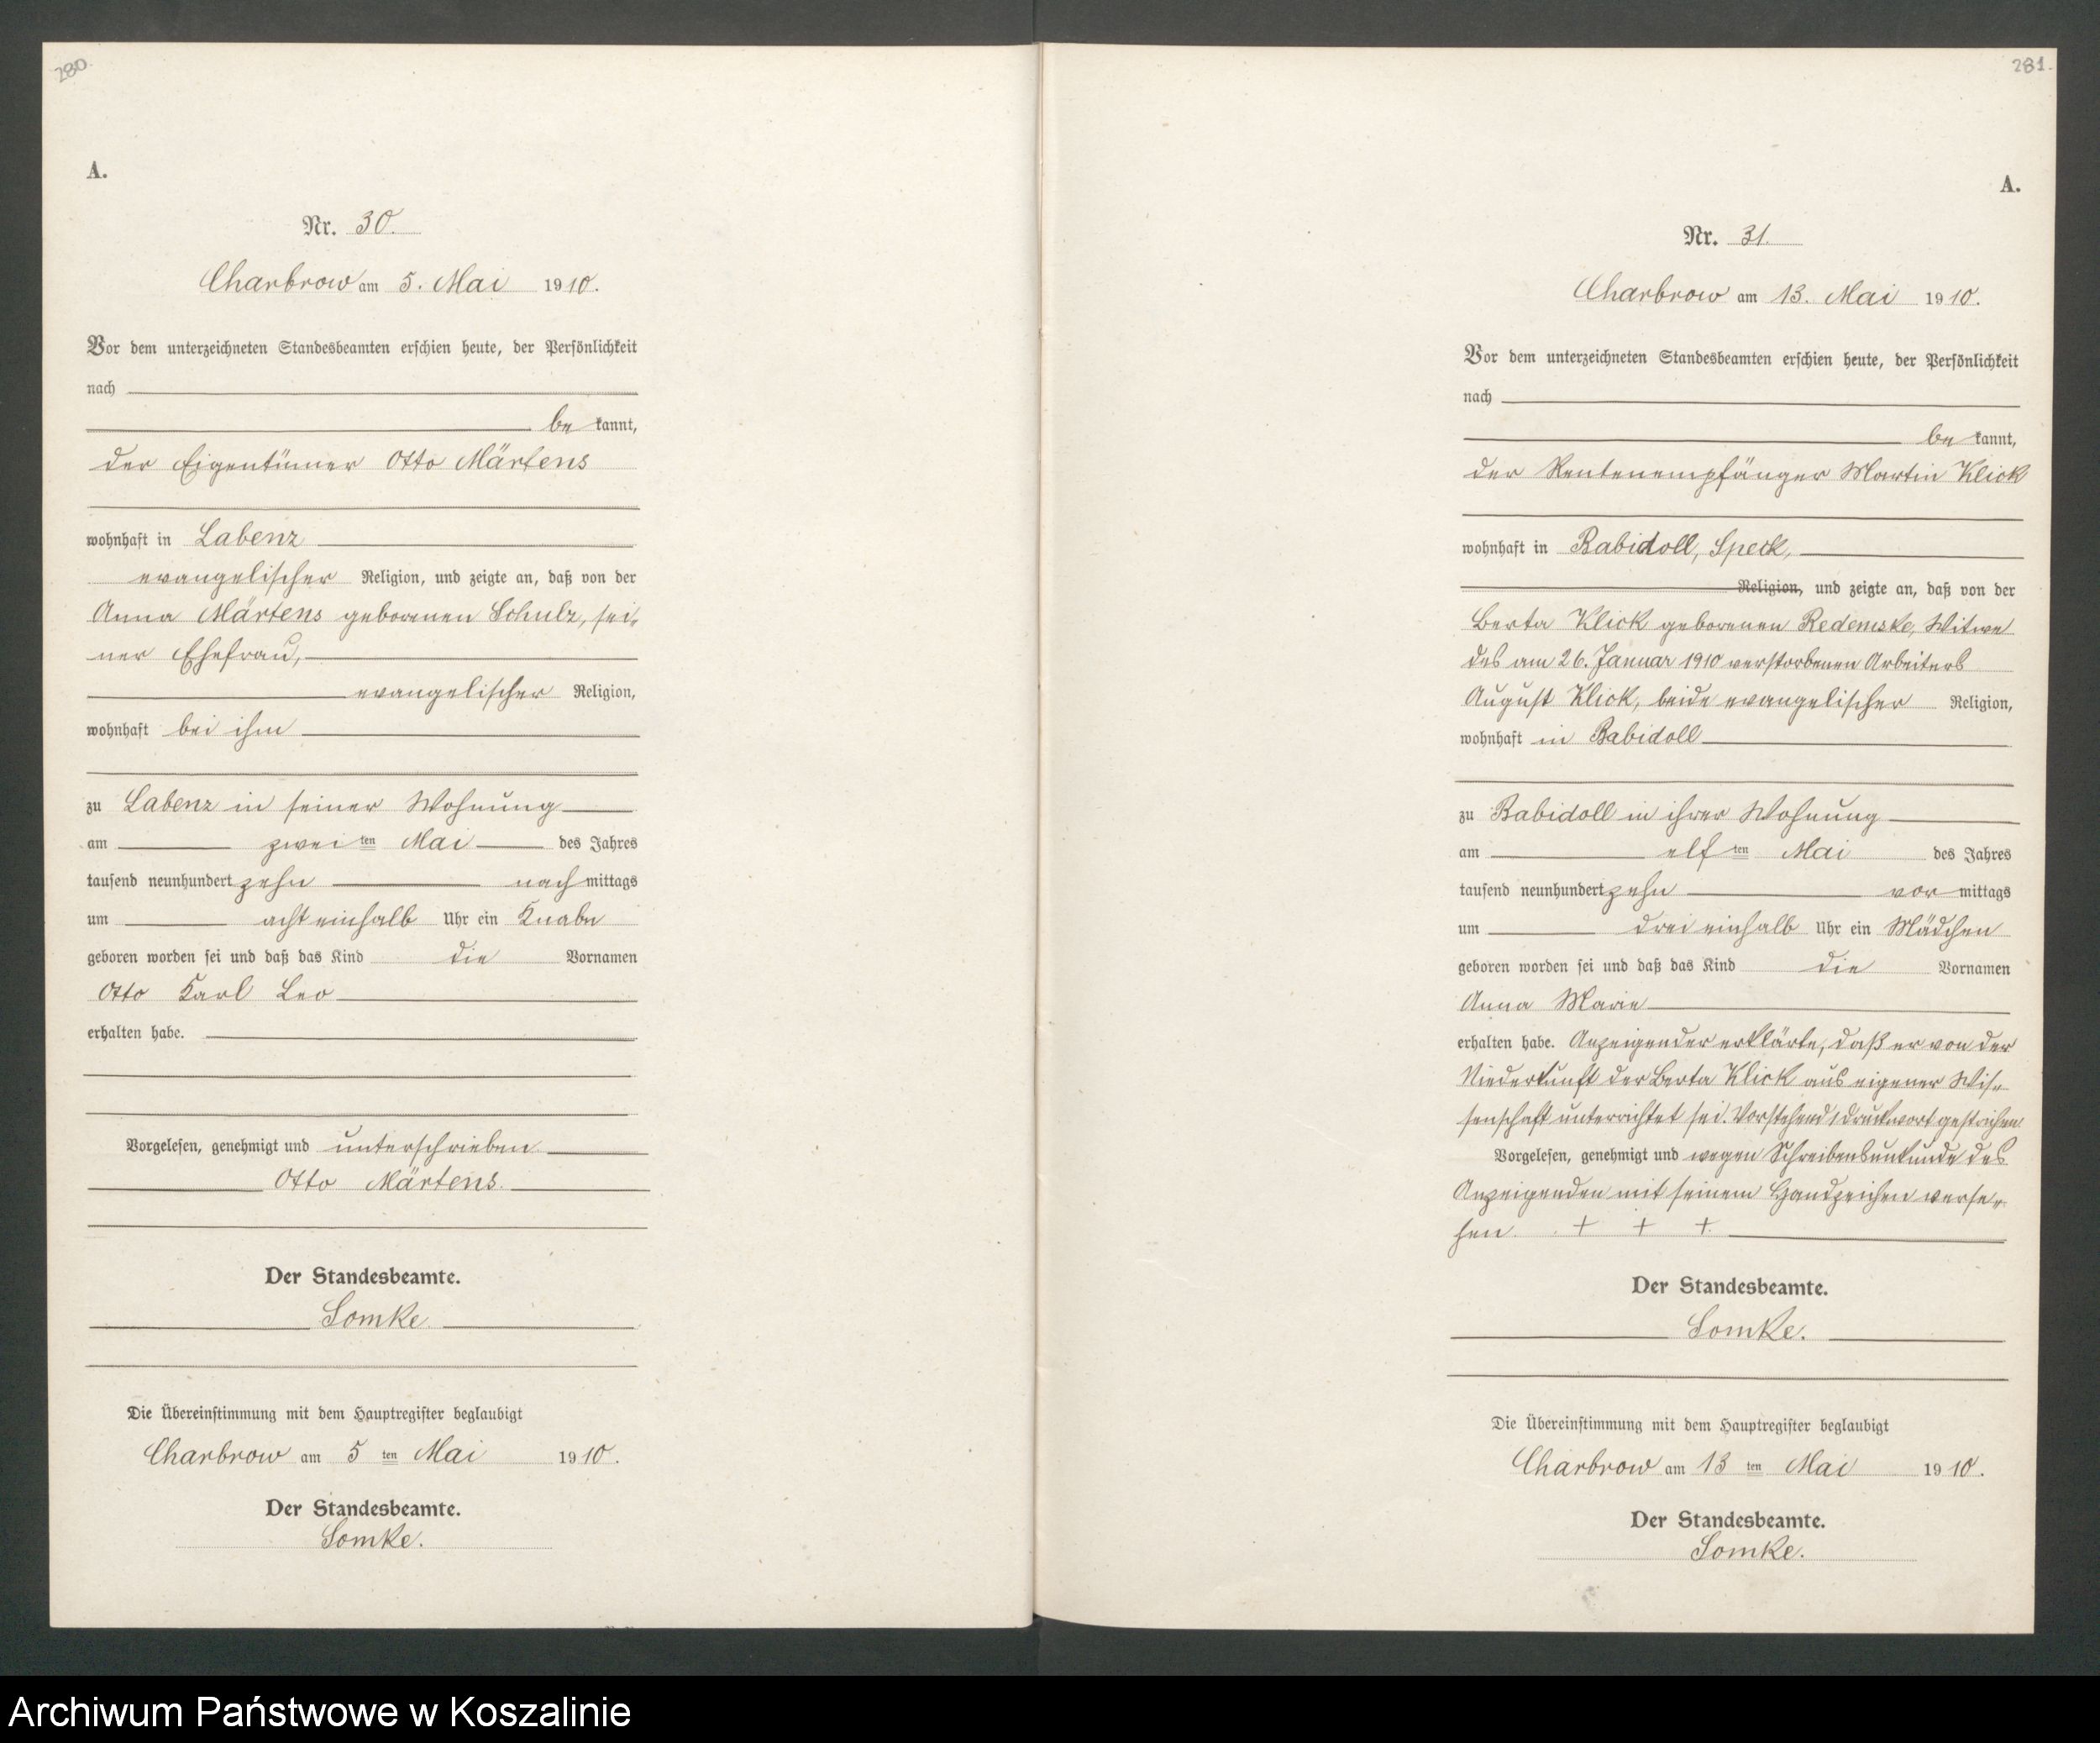 280.
A.
Nr. 30.
Charbrow am 5. Mai 1910.
Vor dem unterzeichneten Standesbeamten erschien heute, der Persönlichkeit
nach
be kannt,
der Eigentümer Otto Märtens
wohnhaft in Labenz
evangelischer Religion, und zeigte an, daß von der
Anna Märtens geborenen Schulz, sei-
ner Ehefrau,
evangelischer Religion,
wohnhaft bei ihm
zu Labenz in seiner Wohnung
am zwei ten Mai des Jahres
tausend neunhundert zehn nach mittags
um acht einhalb Uhr ein Knabe
geboren worden sei und daß das Kind die Vornamen
Otto Karl Leo
erhalten habe.
Vorgelesen, genehmigt und unterschrieben
Otto Märtens.
Der Standesbeamte.
Lomke.
Die Übereinstimmung mit dem Hauptregister beglaubigt
Charbrow am 5 ten Mai 1910.
Der Standesbeamte.
Lomke.
281.
A.
Nr. 31.
Charbrow am 13. Mai 1910.
Vor dem unterzeichneten Standesbeamten erschien heute, der Persönlichkeit
nach
be kannt,
der Rentenempfänger Martin Klick
wohnhaft in Babidoll, Speck,
Religion, und zeigte an, daß von der
Berta Klick geborenen Redemske, Witwe
des am 26. Januar 1910 verstorbenen Arbeiters
August Klick, beide evangelischer Religion,
wohnhaft in Babidoll
zu Babidoll in ihrer Wohnung
am elf ten Mai des Jahres
tausend neunhundert zehn vor mittags
um drei einhalb Uhr ein Mädchen
geboren worden sei und daß das Kind die Vornamen
Anna Marie
erhalten habe. Anzeigender erklärte, daß er von der
Niederkunft der Berta Klick aus eigener Wis-
senschaft unterrichtet sei. Vorstehend 1 Druckwort gestrichen
Vorgelesen, genehmigt und wegen Schreibensunkunde des
Anzeigenden mit seinem Handzeichen verse-
hen. + + +
Der Standesbeamte.
Lomke.
Die Übereinstimmung mit dem Hauptregister beglaubigt
Charbrow am 13 ten Mai 1910.
Der Standesbeamte.
Lomke.
Archiwum Państwowe w Koszalinie